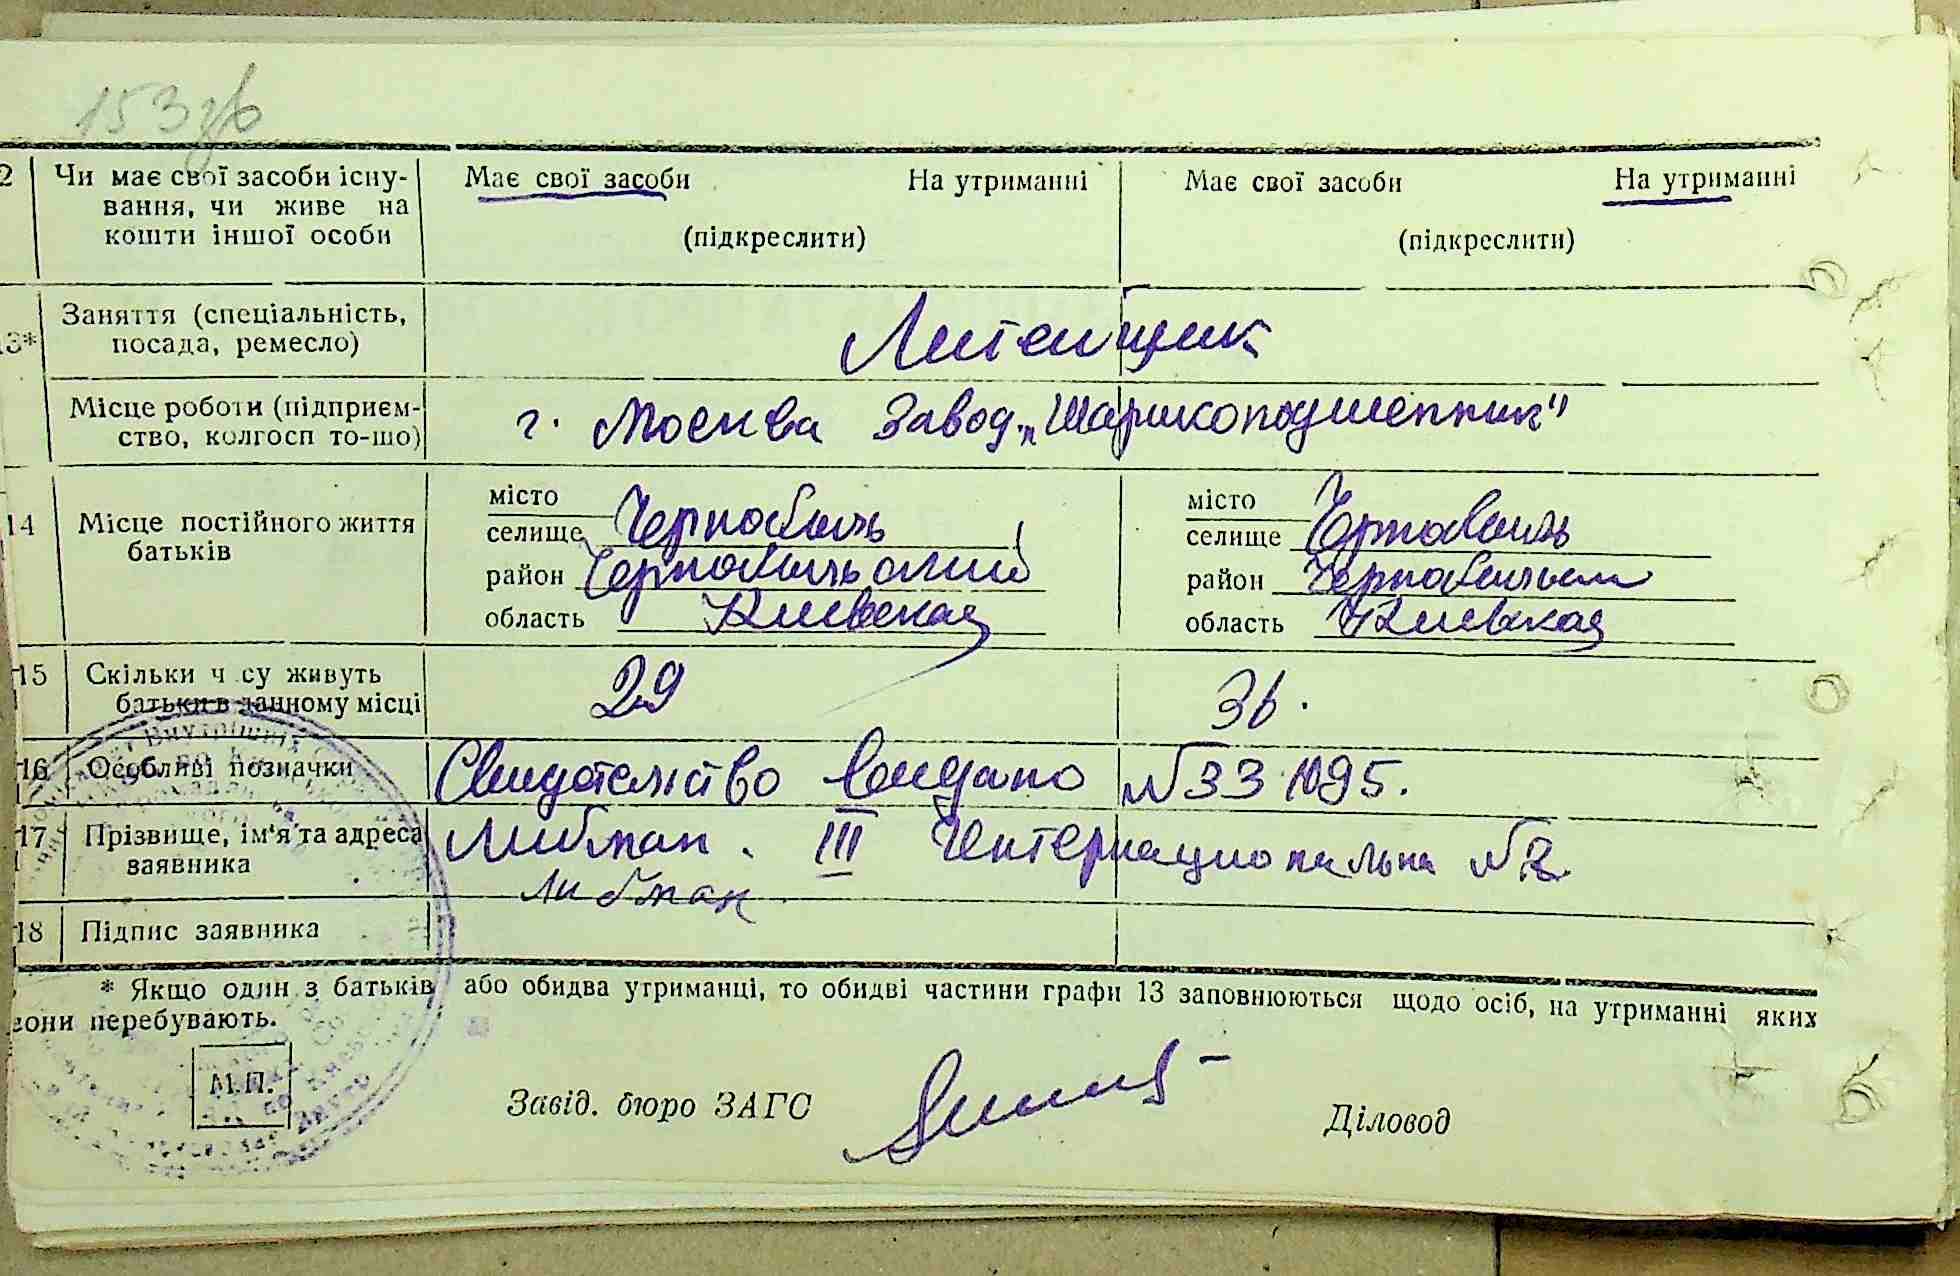 153 зв
2 Чи має свої засоби існу- Має свої засоби На утриманні Має свої засоби На утриманні
вання, чи живе на
кошти іншої особи (підкреслити) (підкреслити)
13* Заняття (спеціальність, Литейщик
посада, ремесло)
Місце роботи (підприєм- г. Москва Завод „Шарикоподшепник"
ство, колгосп то-що)
14 Місце постійного життя місто місто
батьків селище Чернобыль селище Чернобыль
район Чернобыльский район
область Киевская область Киевская
15 Скільки ч су живуть 29 36.
батьки в данному місці
16 Особливі позначки Свидетельство выдано № 331095.
17 Прізвище, ім'я та адреса Либман. III Интернациональна № 2
заявника
Либман
18 Підпис заявника
* Якщо один з батьків або обидва утриманці, то обидві частини графи 13 заповнюються щодо осіб, на утриманні яких
вони перебувають.
М.П.
Завід. бюро ЗАГС Діловод